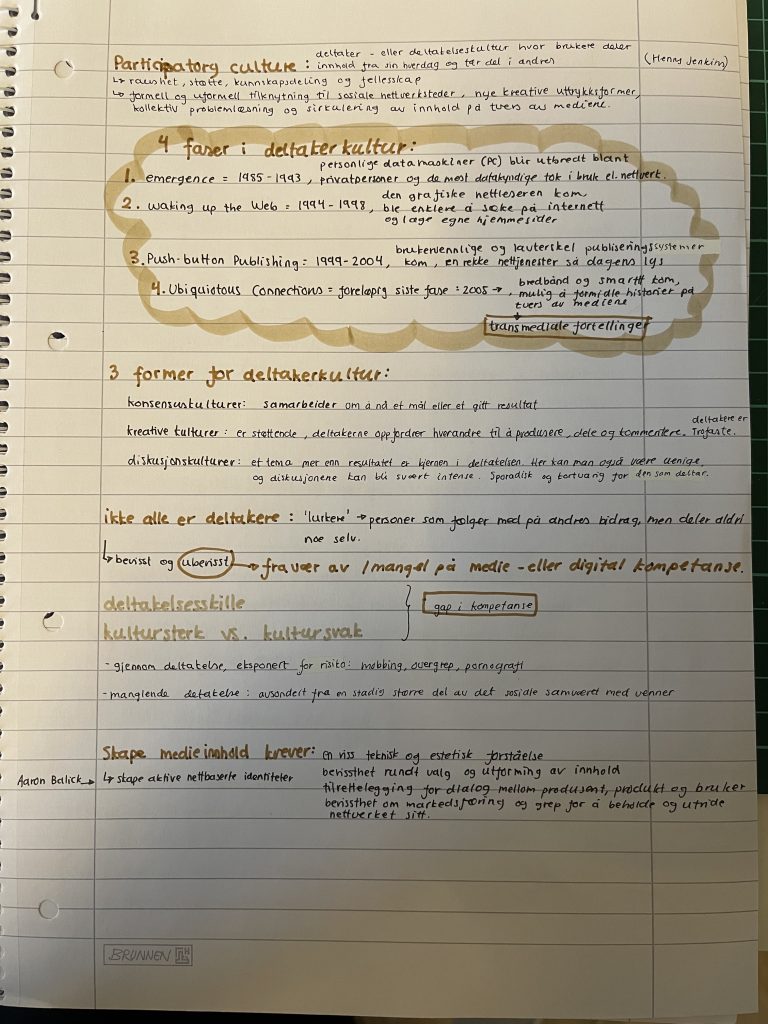 deltaker - eller deltakelseskultur hvor brukere deler
Participatory culture : innhold fra sin hverdag og tar del i andres (Henry Jenkins)
↳ raushet, støtte, kunnskapsdeling og fellesskap
↳ formell og uformell tilknytning til sosiale nettverksteder, nye kreative uttrykksformer,
kollektiv problemløsning og sirkulering av innhold på tvers av mediene.
4 faser i deltakerkultur:
personlige datamaskiner (PC) blir utbredt blant
1. emergence = 1985-1993, privatpersoner og de mest datakyndige tok i bruk el. nettverk.
den grafiske nettleseren kom,
2. Waking up the Web = 1994-1998, ble enklere å søke på internett
og lage egne hjemmesider
brukervennlige og lavterskel publiseringssystemer
3. Push-button Publishing = 1999-2004, kom, en rekke nettjenester så dagens lys
bredbånd og smarttlf kom,
4. Ubiquotous Connections = foreløpig siste fase : 2005 → , mulig å formidle historier på
tvers av mediene
transmediale fortellinger
3 former for deltakerkultur:
konsensuskulturer: samarbeider om å nå et mål eller et gitt resultat
deltakere er
kreative kulturer : er støttende, deltakerne oppfordrer hverandre til å produsere, dele og kommentere. Trofaste.
diskusjonskulturer : et tema mer enn resultatet er kjernen i deltakelsen. Her kan man også være uenige,
og diskusjonene kan bli svært intense. Sporadisk og kortvarig for den som deltar.
ikke alle er deltakere : 'lurkere' → personer som følger med på andres bidrag, men deler aldri
noe selv.
↳ bevisst og ubevisst → fravær av / mangel på medie - eller digital kompetanse.
deltakelsesskille
gap i kompetanse
kultursterk vs. kultursvak
- gjennom deltakelse, eksponert for risiko: mobbing, overgrep, pornografi
- manglende detakelse : avsondert fra en stadig større del av det sosiale samværet med venner
Skape medieinnhold krever: en viss teknisk og estetisk forståelse
bevissthet rundt valg og utforming av innhold
Aaron Balick → ↳ skape aktive nettbaserte identiteter
tilrettelegging for dialog mellom produsent, produkt og bruker
bevissthet om markedsføring og grep for å beholde og utvide
nettverket sitt.
BRUNNEN